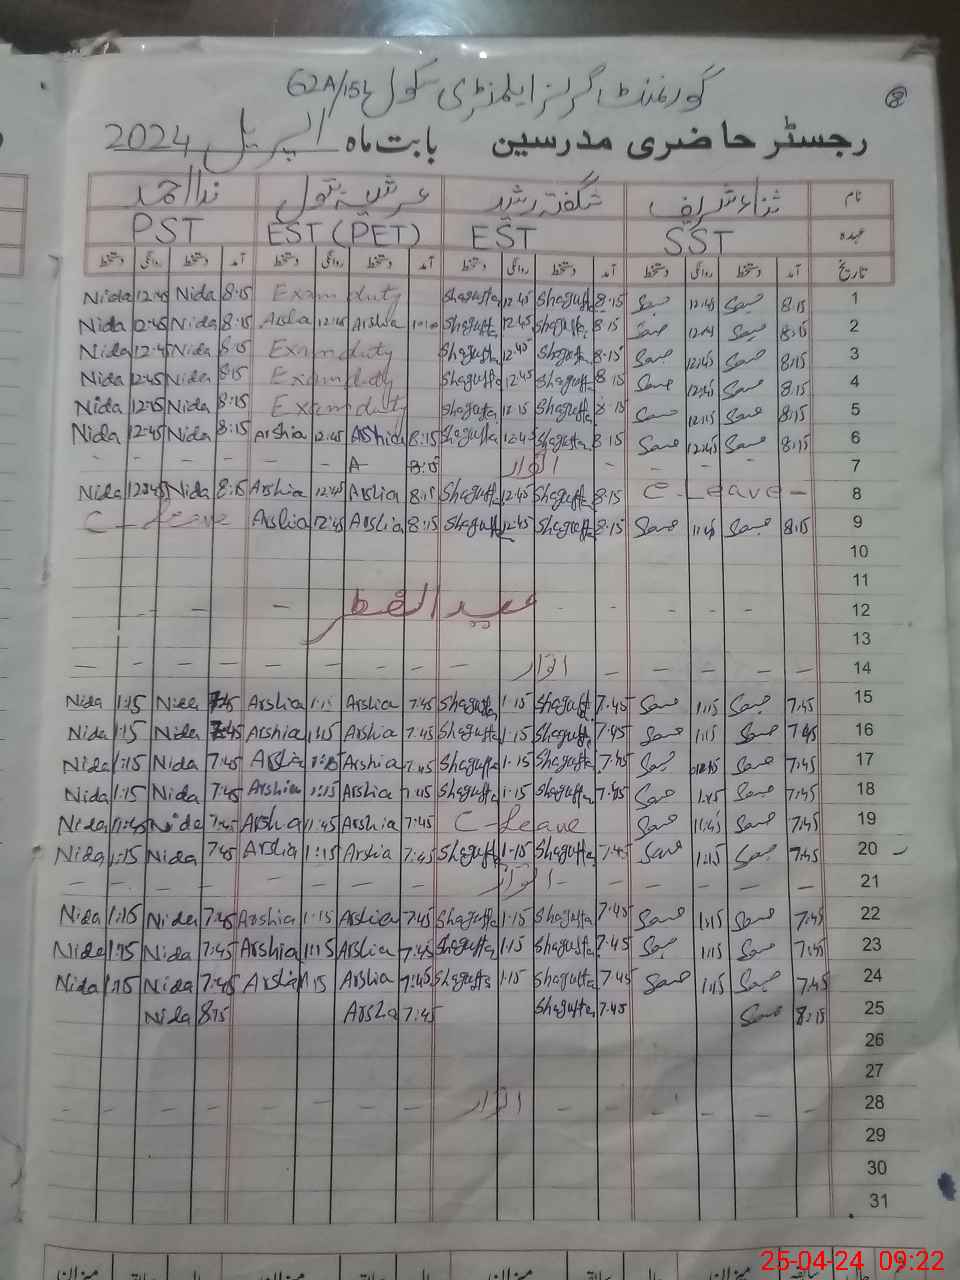 گورنمنٹ گرلز ایلمنٹری سکول 62A/15L
8
رجسٹر حاضری مدرسین بابت ماہ اپریل 2024
نام ثناء شریف شگفتہ رشید عرشیہ بتول ندا احمد
عہدہ SST EST EST (PET) PST
تاریخ آمد دستخط روانگی دستخط آمد دستخط روانگی دستخط آمد دستخط روانگی دستخط آمد دستخط روانگی دستخط
Nida 12:45 Nida 8:15 Exam duty Shagufta 12:45 Shagufta 8:15 12:45 8:15 1
Nida 12:45 Nida 8:15 Arshia 12:45 Arshia Shagufta 12:45 Shagufta 8:15 8:15 2
Nida 12:45 Nida 8:15 Exam duty Shagufta 12:45 Shagufta 8:15 12:45 8:15 3
Nida 12:45 Nida 8:15 Exam duty Shagufta 12:45 Shagufta 8:15 12:45 8:15 4
Nida Nida 8:15 Exam duty Shagufta Shagufta 8:15 8:15 5
Nida 12:45 Nida 8:15 Arshia 12:45 Arshia 8:15 Shagufta 12:45 Shagufta 8:15 12:45 8:15 6
A 8:15 اتوار 7
Nida Nida 8:15 Arshia 12:45 Arshia 8:15 Shagufta 12:45 Shagufta 8:15 C-Leave 8
C-Leave Arshia 12:45 Arshia 8:15 Shagufta 12:45 Shagufta 8:15 8:15 9
10
11
عید الفطر 12
13
اتوار 14
Nida 1:15 Nida 7:45 Arshia 1:15 Arshia 7:45 Shagufta 1:15 Shagufta 7:45 1:15 7:45 15
Nida 1:15 Nida 7:45 Arshia 1:15 Arshia 7:45 Shagufta 1:15 Shagufta 7:45 1:15 7:45 16
Nida 1:15 Nida 7:45 Arshia 1:15 Arshia 7:45 Shagufta 1:15 Shagufta 7:45 7:45 17
Nida 1:15 Nida 7:45 Arshia 1:15 Arshia 7:45 Shagufta 1:15 Shagufta 7:45 7:45 18
Nida 11:45 Nida 7:45 Arshia 11:45 Arshia 7:45 C-Leave 11:45 7:45 19
Nida 1:15 Nida 7:45 Arshia 1:15 Arshia 7:45 Shagufta 1:15 Shagufta 7:45 1:15 7:45 20
اتوار 21
Nida 1:15 Nida 7:45 Arshia 1:15 Arshia 7:45 Shagufta 1:15 Shagufta 7:45 1:15 7:45 22
Nida 1:15 Nida 7:45 Arshia 1:15 Arshia 7:45 Shagufta 1:15 Shagufta 7:45 1:15 7:45 23
Nida 1:15 Nida 7:45 Arshia 1:15 Arshia 7:45 Shagufta 1:15 Shagufta 7:45 1:15 7:45 24
Nida 8:15 Arshia 7:45 Shagufta 7:45 8:15 25
26
27
اتوار 28
29
30
31
25-04-24 09:22